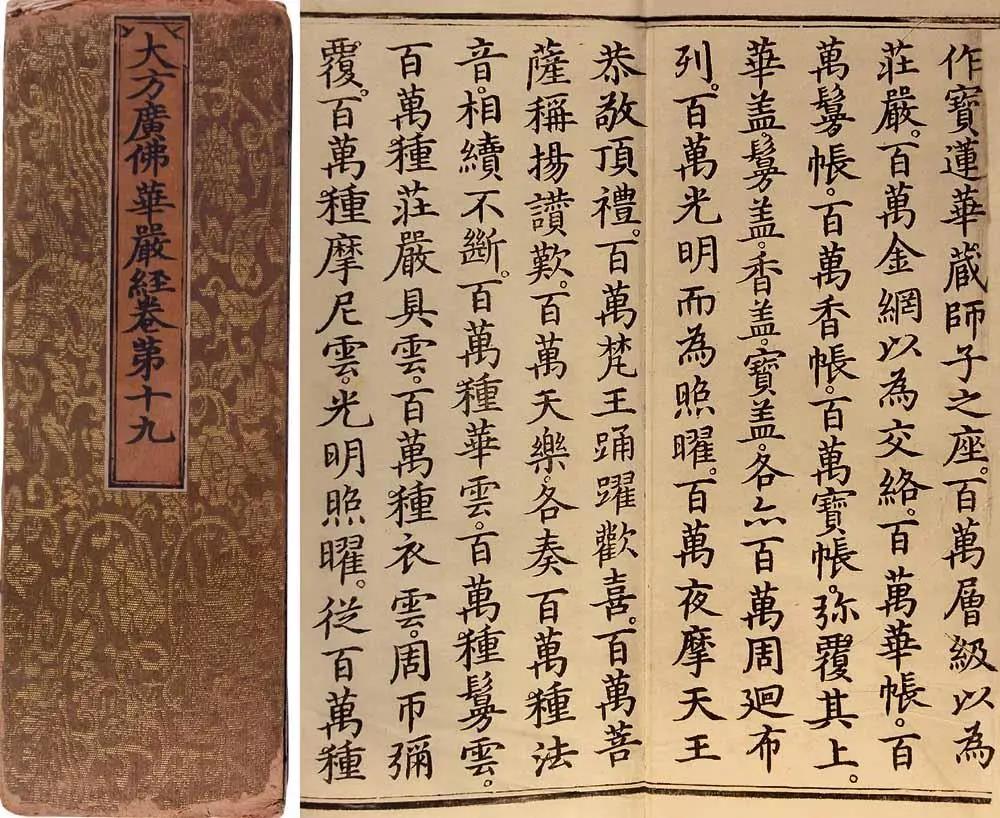 大方廣佛華嚴経卷第十九
作寶蓮華藏師子之座。百萬層級以為
莊嚴。百萬金網以為交絡。百萬華帳。百
萬鬘帳。百萬香帳。百萬寶帳。弥覆其上。
華盖。鬘盖。香盖。寶盖。各亦百萬周廻布
列。百萬光明而為照曜。百萬夜摩天王
恭敬頂禮。百萬梵王踊躍歡喜。百萬菩
薩稱揚讃歎。百萬天樂。各奏百萬種法
音。相續不斷。百萬種華雲。百萬種鬘雲。
百萬種莊嚴具雲。百萬種衣雲。周帀彌
覆。百萬種摩尼雲。光明照曜。従百萬種